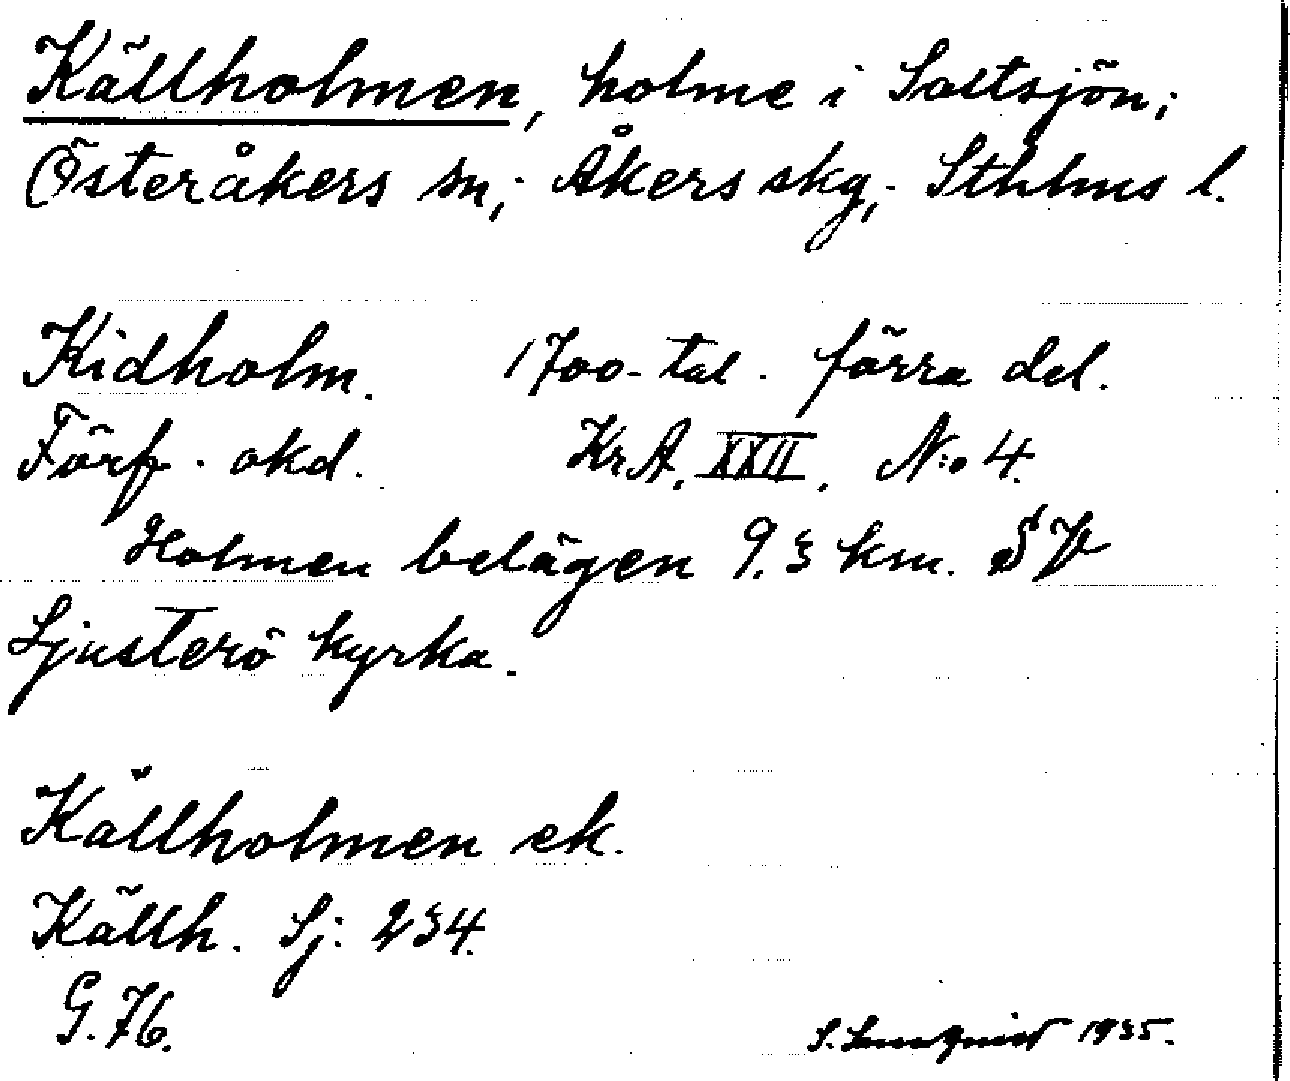 Källholmen, holme i Saltsjön;
Österåkers sn; Åkers skg; Sthlms l.
Kidholm. 1700-tal. förra del.
Förf. okd. KrA. XXII. N:o 4.
Holmen belägen 9.3 km. SV
Ljusterö kyrka.
Källholmen ek.
Källh. Sj. 234.
G. 76.
S. 1935.